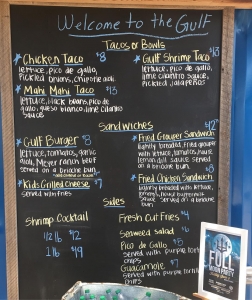 Welcome to the Gulf
Tacos or Bowls
Chicken Taco $8
lettuce, pico de gallo,
pickled onions, chipotle aioli
Mahi Mahi Taco $13
lettuce, black beans, pico de
gallo, queso blanco, lime cilantro
sauce
Gulf Shrimp Taco $13
lettuce, pico de gallo,
lime cilantro sauce,
pickled jalapeños
Sandwiches
Gulf Burger $8
lettuce, tomatoes, garlic
aioli, Meyer ranch beef
served on a brioche bun
Kids Grilled Cheese $7
served with fries
Fried Grouper Sandwich $12
lightly breaded, fried grouper
with lettuce, tomatoes, house
lemon dill sauce served
on a brioche bun
Fried Chicken Sandwich $8
lightly breaded with lettuce,
Sauce served on a brioche bun
Sides
Shrimp Cocktail
1/2 lb $2
1 lb $9
Fresh Cut Fries $4
Seaweed salad $6
Pico de Gallo $5
served with purple tortilla
chips
Guacamole $7
served with purple tortilla
chips
FULL
MOON PARTY